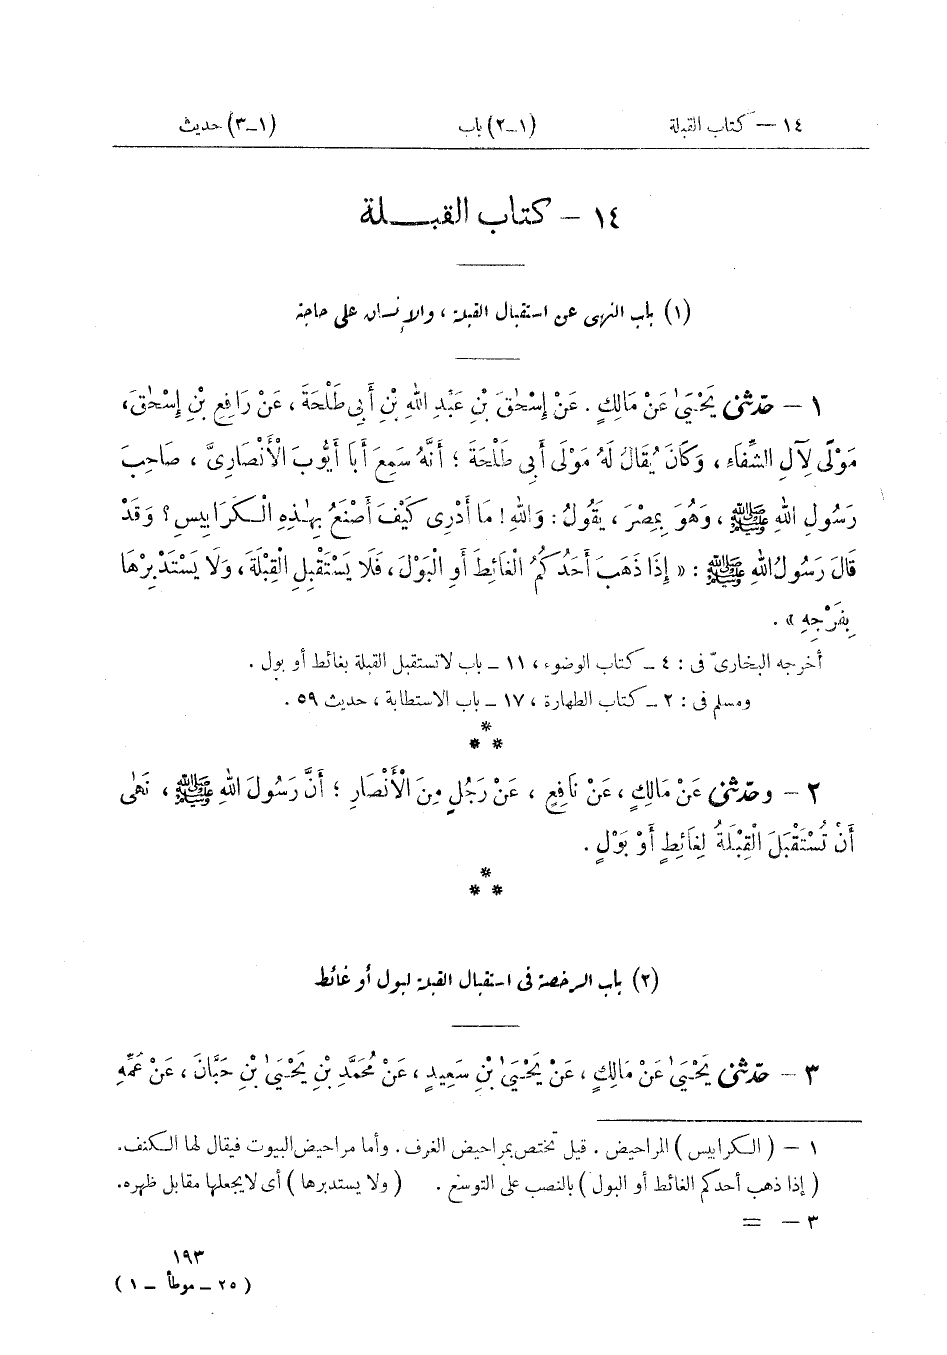 ١٤ — كتاب القبلة (١-٢) باب (١-٣) حديث
١٤ - كتاب القبـــلة
(١) باب النهى عن استقبال القبلة ، والإنسان على حاجة
١ - حدّثنى يَحْيَىٰ عَنْ مَالِكٍ . عَنْ إِسْحٰقَ بْنِ عَبْدِ اللهِ بْنِ أَبِي طَلْحَةَ ، عَنْ رَافِعِ بْنِ إِسْحٰقَ ،
مَوْلًى لِآلِ الشِّفَاءِ ، وَكَانَ يُقَالُ لَهُ مَوْلَى أَبِي طَلْحَةَ ؛ أَنَّهُ سَمِعَ أَبَا أَيُّوبَ الْأَنْصَارِىَّ ، صَاحِبَ
رَسُولِ اللهِ ﷺ ، وَهُوَ بِمِصْرَ ، يَقُولُ : وَاللهِ ! مَا أَدْرِى كَيْفَ أَصْنَعُ بِهٰذِهِ الْـكَرَابِيسِ ؟ وَقَدْ
قَالَ رَسُولُ اللهِ ﷺ : « إِذَا ذَهَبَ أَحَدُكُمُ الْغَائِطَ أَوِ الْبَوْلَ ، فَلَا يَسْتَقْبِلِ الْقِبْلَةَ ، وَلَا يَسْتَدْبِرْهَا
بِفَرْجِهِ » .
أخرجه البخارىّ فى : ٤ ــ كتاب الوضوء ، ١١ ــ باب لاتستقبل القبلة بغائط أو بول .
ومسلم فى : ٢ ــ كتاب الطهارة ، ١٧ ــ باب الاستطابة ، حديث ٥٩ .
*
* *
٢ - وحدّثنى عَنْ مَالِكٍ ، عَنْ نَافِعٍ ، عَنْ رَجُلٍ مِنَ الْأَنْصَارِ ؛ أَنَّ رَسُولَ اللهِ ﷺ ، نَهَى
أَنْ تُسْتَقْبَلَ الْقِبْلَةُ لِغَائِطٍ أَوْ بَوْلٍ .
*
* *
(٢) باب الرخصة فى استقبال القبلة لبول أو غائط
٣ - حدّثنى يَحْيَىٰ عَنْ مَالِكٍ ، عَنْ يَحْيَىٰ بْنِ سَعِيدٍ ، عَنْ مُحَمَّدِ بْنِ يَحْيَىٰ بْنِ حَبَّانَ ، عَنْ عَمِّهِ
١ - ( الـكرابيس ) المراحيض . قيل تختص بمراحيض الغرف . وأما مراحيض البيوت فيقال لها الـكنف .
( إذا ذهب أحدكم الغائط أو البول ) بالنصب على التوسّع . ( ولا يستدبرها ) أى لايجعلها مقابل ظهره .
٣ - =
١٩٣
( ٢٥ ــ موطأ ــ ١ )